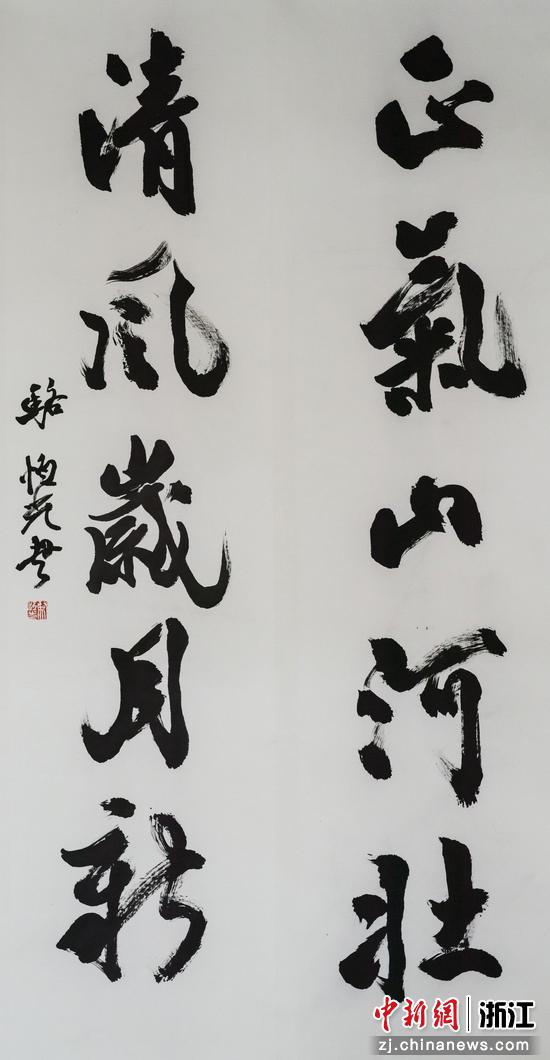 正氣山河壯
清風歲月新
駱恒光書
中新網 浙江
zj.chinanews.com